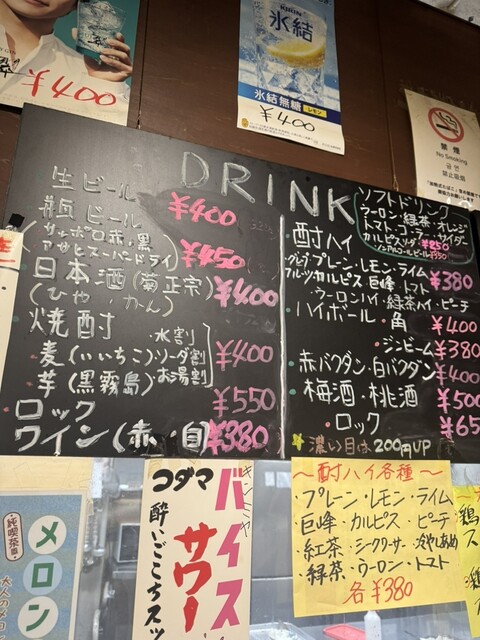 ¥400
KIRIN
氷結
氷結無糖 レモン
¥400
禁煙
No Smoking
금연
禁止吸烟
DRINK
生ビール ¥400
瓶ビール
(サッポロ赤・黒
アサヒスーパードライ) ¥450
日本酒(菊正宗)
(ひや・かん) ¥400
焼酎
・水割
麦(いいちこ)ソーダ割 ¥400
芋(黒霧島)お湯割
ロック ¥550
ワイン(赤・白) ¥380
ソフトドリンク
ウーロン・緑茶・オレンジ
トマト・コーラ・サイダー
カルピスソーダ ¥250
ノンアルコールビール ¥350
・酎ハイ
プレーン・レモン・ライム
カルピス・巨峰・トマト ¥380
ウーロンハイ・緑茶ハイ・ピーチ
・ハイボール・角 ¥400
・ジンビーム ¥380
・赤バクダン・白バクダン ¥400
・梅酒・桃酒 ¥500
・ロック ¥65
★濃い目は200円UP
メロン
コダマ
バイス
サワー
酔いごこちスッ
キンミヤ
〜酎ハイ各種〜
・プレーン・レモン・ライム
・巨峰・カルピス・ピーチ
・紅茶・シークワーサー・冷やしあめ
・緑茶・ウーロン・トマト
各¥380
鶏